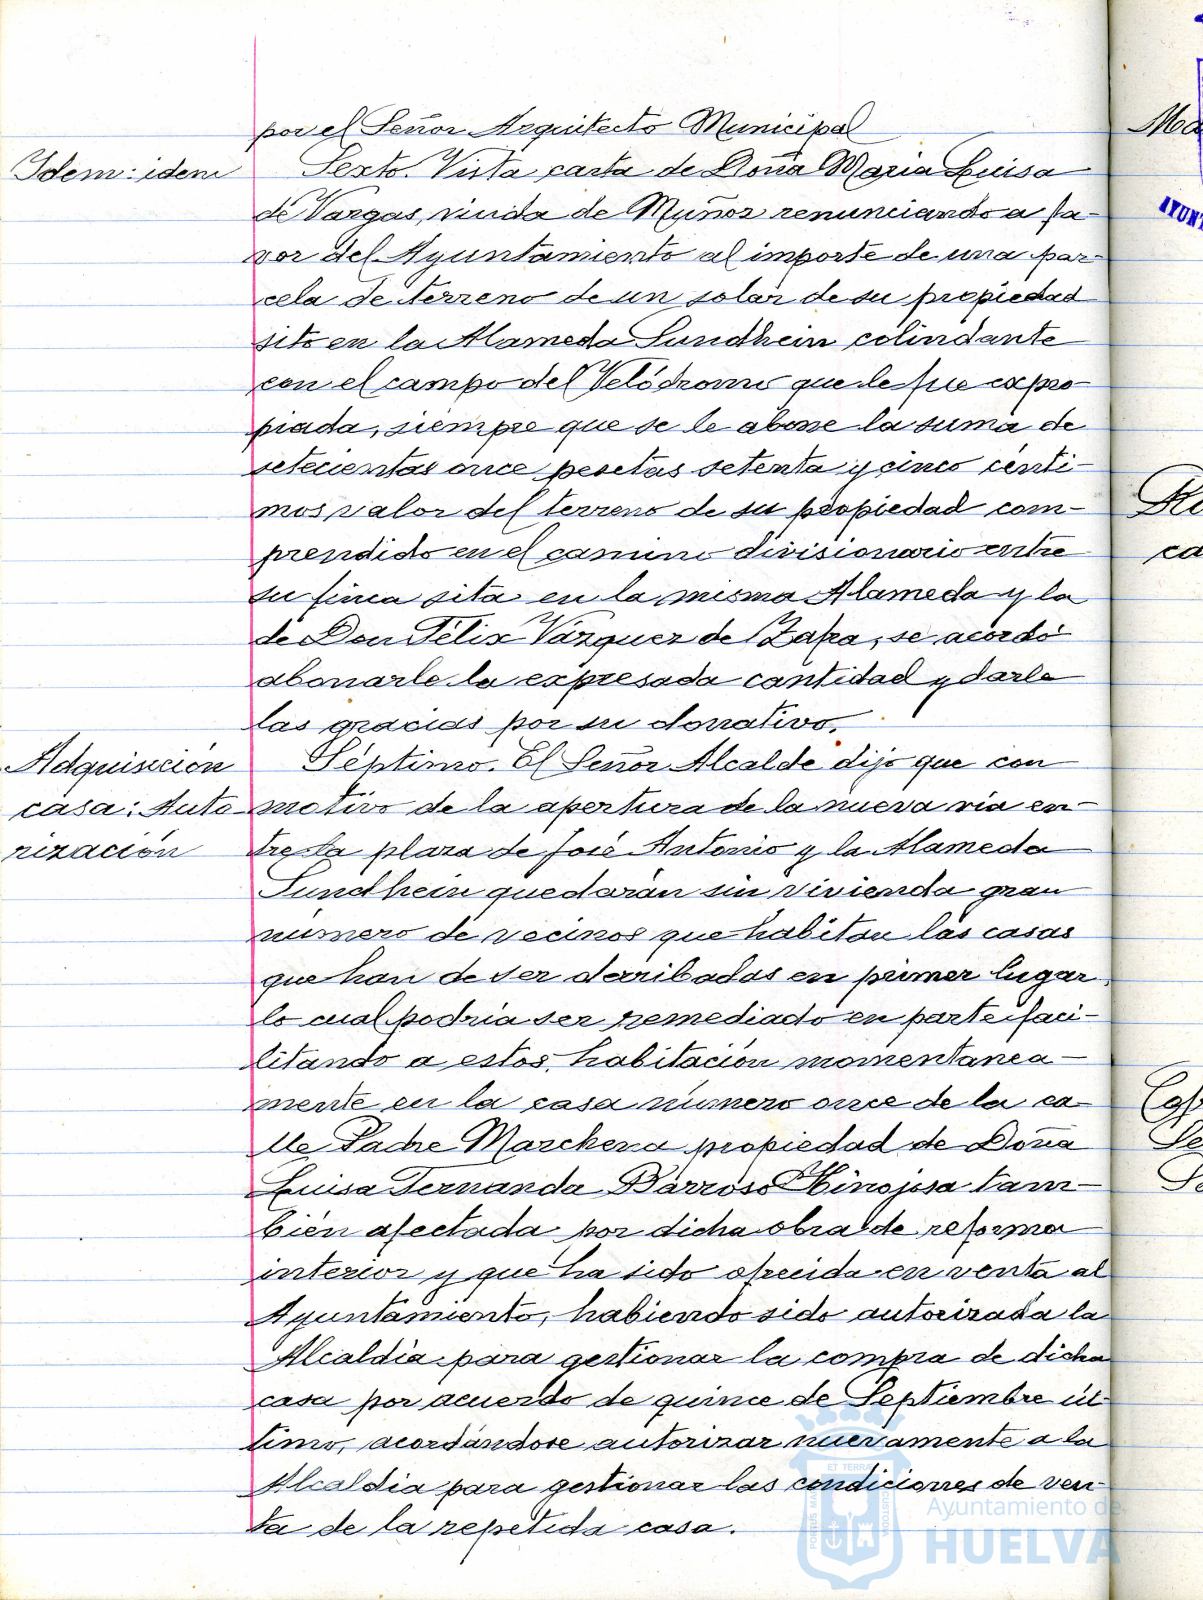 por el Señor Arquitecto Municipal
Idem: idem
Sexto. Vista carta de Doña Maria Luisa
de Vargas, viuda de Muñoz renunciando a fa-
vor del Ayuntamiento al importe de una par-
cela de terreno de un solar de su propiedad
sito en la Alameda Sundhein colindante
con el campo del Velódromo que le fue expro-
piada, siempre que se le abone la suma de
setecientas once pesetas setenta y cinco cénti-
mos valor del terreno de su propiedad com-
prendido en el camino divisionario entre
su finca sita en la misma Alameda y la
de Don Félix Vázquez de Zafra, se acordó
abonarle la expresada cantidad y darle
las gracias por su donativo.
Adquisición
casa: Auto-
rización
Séptimo. El Señor Alcalde dijo que con
motivo de la apertura de la nueva via en-
tre la plaza de José Antonio y la Alameda
Sundhein quedarán sin vivienda gran
número de vecinos que habitan las casas
que han de ser derribadas en primer lugar,
lo cual podría ser remediado en parte faci-
litando a estos, habitación momentanea-
mente en la casa número once de la ca-
lle Padre Marchena propiedad de Doña
Luisa Fernanda Barroso Hinojosa tam-
bién afectada por dicha obra de reforma
interior y que ha sido ofrecida en venta al
Ayuntamiento, habiendo sido autorizada la
Alcaldía para gestionar la compra de dicha
casa por acuerdo de quince de Septiembre úl-
timo, acordándose autorizar nuevamente a la
Alcaldia para gestionar las condiciones de ven-
ta de la repetida casa.
Ayuntamiento de
HUELVA